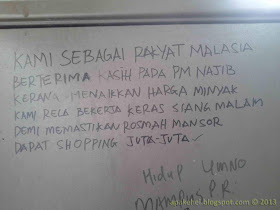 KAMI SEBAGAI RAKYAT MALASIA
BERTERIMA KASIH PADA PM NAJIB
KERANA MENAIKKAN HARGA MINYAK
KAMI RELA BEKERJA KERAS SIANG MALAM
DEMI MEMASTIKAN ROSMAH MANSOR
DAPAT SHOPPING JUTA-JUTA ✓
Hidup UMNO
MAMPUS P.R.